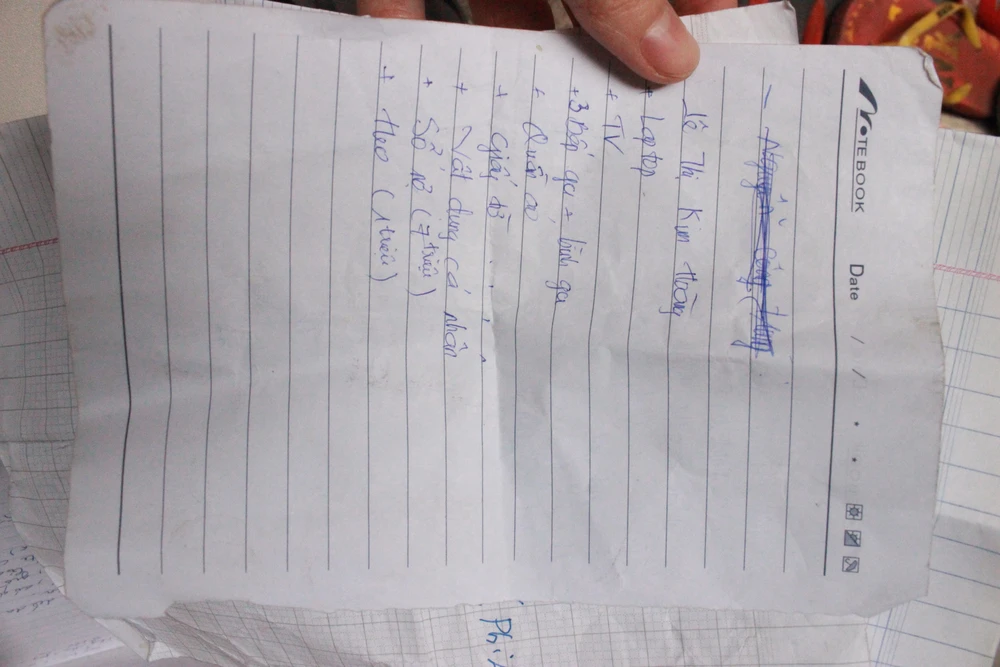 NOTEBOOK Date / /
- Nguyễn Công
Lê Thị Kim Hường
+ Laptop.
+ TV
+ 3 Bếp ga + bình ga
+ Quần áo
+ Giấy tờ
+ Vật dụng cá nhân
+ Sổ nợ (7 triệu)
+ Heo (1 triệu)
Phi